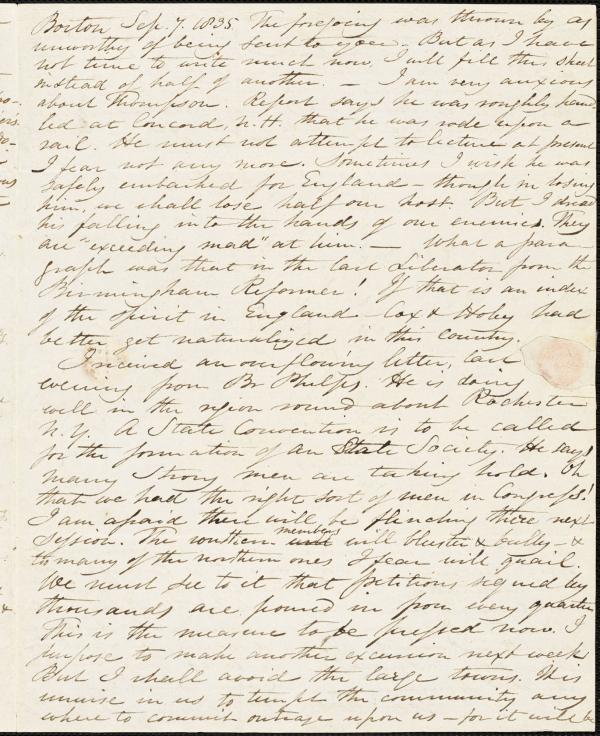 Boston Sep. 7. 1835. The foregoing was thrown by as
unworthy of being sent to you – But as I have
not time to write much now, I will fill this sheet
instead of half of another. – I am very anxious
about Thompson. Report says he was roughly hand-
led at Concord, N.H. that he was rode upon a
rail. He must not attempt to lecture at present
I fear not any more. Sometimes I wish he was
safely embarked for England – though in losing
him, we shall lose half our host. But I dread
his falling into the hands of our enemies. They
are "exceeding mad" at him. – What a para
graph was that in the last Liberator from the
Birmingham Reformer! If that is an index
of the spirit in England – Cox & Hoby had
better get naturalized in this country.
I received an overflowing letter, last
evening from Br Phelps. He is doing
well in the region round about Rochester
N.Y. A State Convention is to be called
for the formation of an State Society. He says
many strong men are taking hold. Oh
that we had the right sort of men in Congress!
I am afraid there will be flinching there next
session. The southern members will bluster & bully – &
too many of the northern ones I fear will quail.
We must see to it that petitions signed by
thousands are poured in from every quarter
This is the measure to be pressed now. I
purpose to make another excursion next week
But I shall avoid the large towns. It is
unwise in us to tempt the community any
where to commit outrage upon us – for it will be